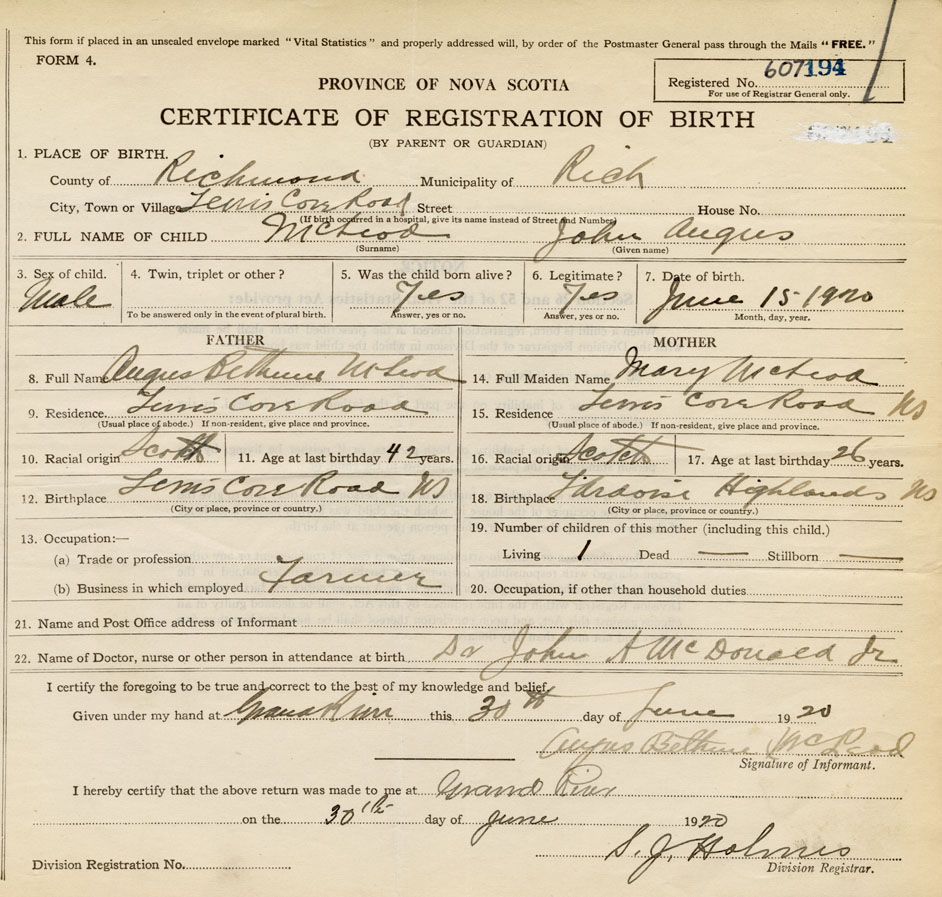 This form if placed in an unsealed envelope marked "Vital Statistics" and properly addressed will, by order of the Postmaster General pass through the Mails "FREE."
FORM 4.
Registered No. 607194
For use of Registrar General only.
PROVINCE OF NOVA SCOTIA
CERTIFICATE OF REGISTRATION OF BIRTH
(BY PARENT OR GUARDIAN)
1. PLACE OF BIRTH.
County of Richmond Municipality of Rich
City, Town or Village Lewis Cove Road Street House No.
(If birth occurred in a hospital, give its name instead of Street and Number)
2. FULL NAME OF CHILD McLeod John Angus
(Surname) (Given name)
3. Sex of child. 4. Twin, triplet or other? 5. Was the child born alive? 6. Legitimate? 7. Date of birth.
Male Yes Yes June 15 1920
To be answered only in the event of plural birth. Answer, yes or no. Answer, yes or no. Month, day, year.
FATHER MOTHER
8. Full Name Angus Bethune McLeod 14. Full Maiden Name Mary McLeod
9. Residence Lewis Cove Road 15. Residence Lewis Cove Road NS
(Usual place of abode.) If non-resident, give place and province. (Usual place of abode.) If non-resident, give place and province.
10. Racial origin Scotch 11. Age at last birthday 42 years. 16. Racial origin Scotch 17. Age at last birthday 26 years.
12. Birthplace Lewis Cove Road NS 18. Birthplace Highlands NS
(City or place, province or country.) (City or place, province or country.)
19. Number of children of this mother (including this child.)
13. Occupation:—
Living 1 Dead — Stillborn —
(a) Trade or profession
(b) Business in which employed Farmer 20. Occupation, if other than household duties
21. Name and Post Office address of Informant
22. Name of Doctor, nurse or other person in attendance at birth Dr John A McDonald Jr.
I certify the foregoing to be true and correct to the best of my knowledge and belief.
Given under my hand at Grand River this 30th day of June 1920
Angus Bethune McLeod
Signature of Informant.
I hereby certify that the above return was made to me at Grand River
on the 30th day of June 1920
S. J. Holmes
Division Registration No. Division Registrar.